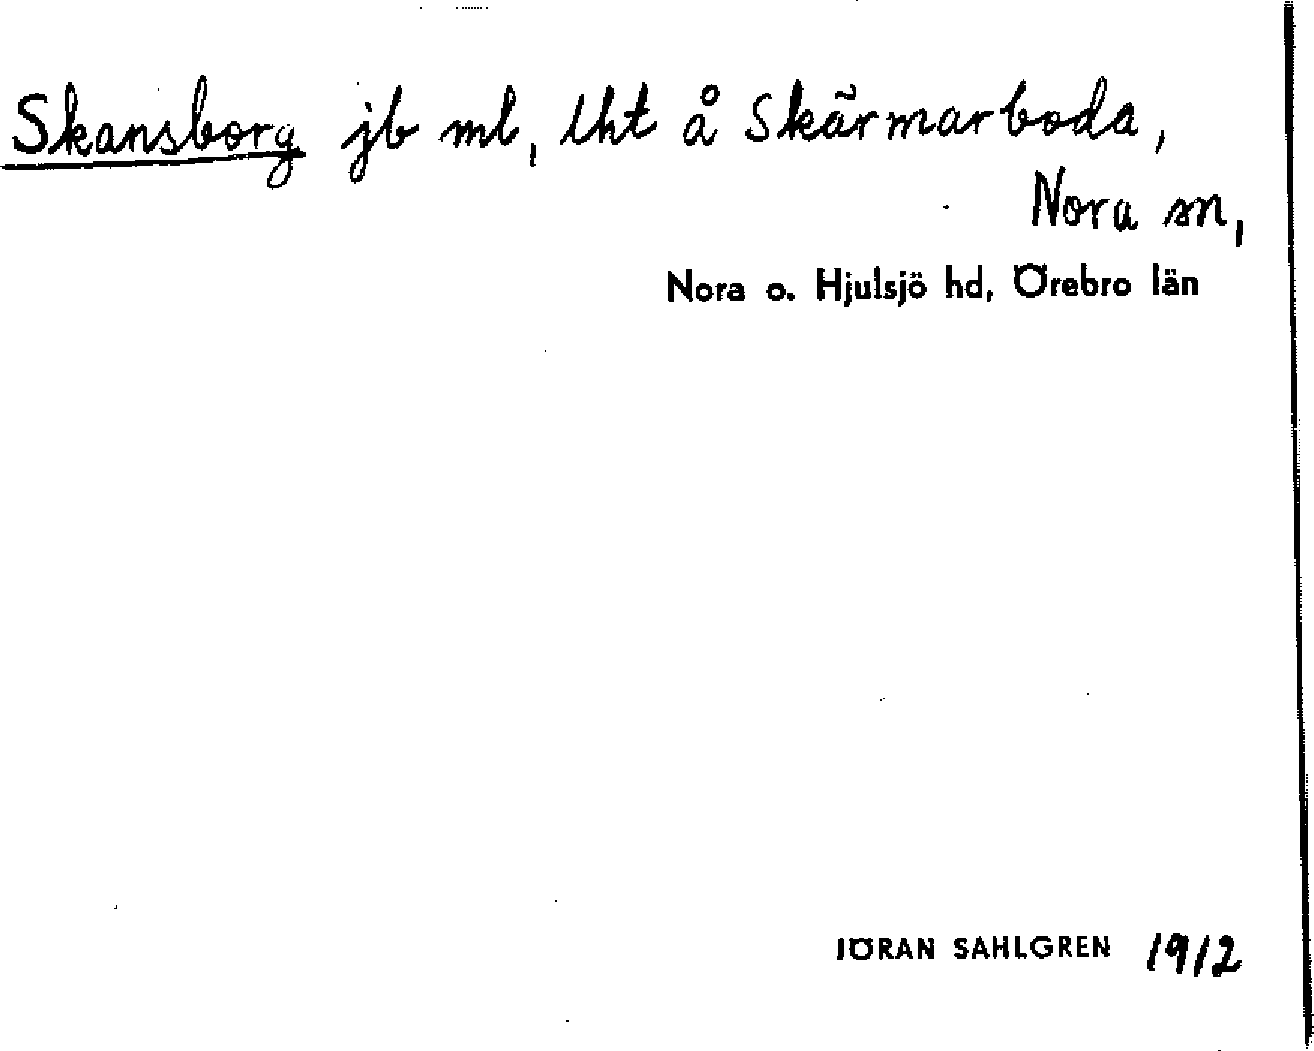 Skansborg jb ml, lht å Skärmarboda,
Nora sn,
Nora o. Hjulsjö hd, Örebro län
JÖRAN SAHLGREN 1912